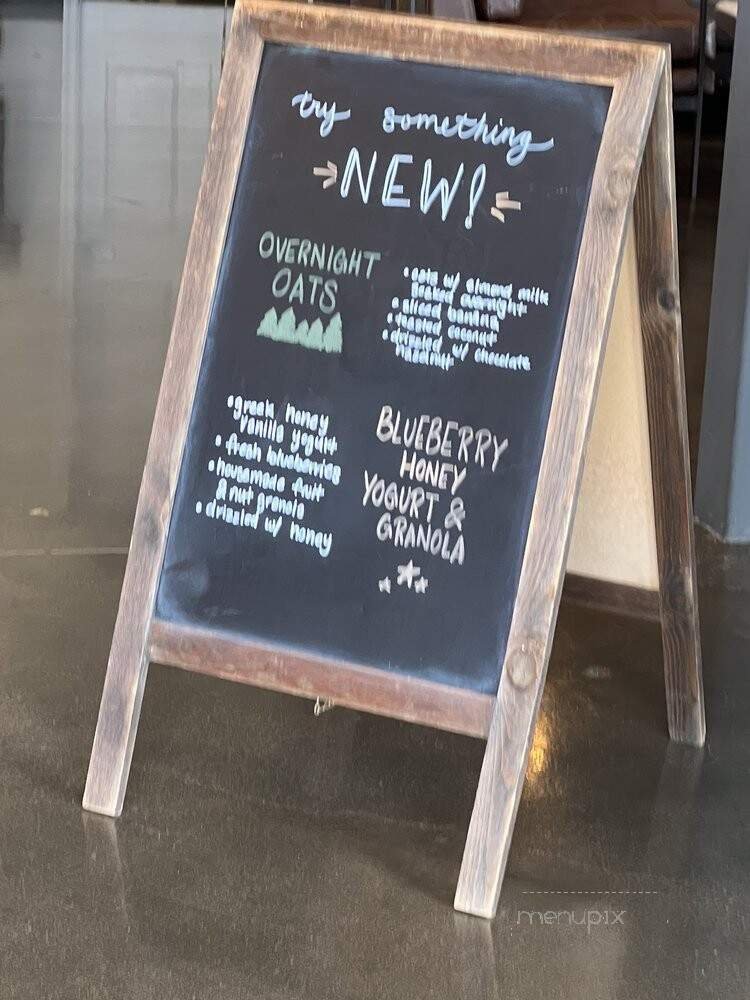 try something
NEW!
OVERNIGHT
OATS
• oats w/ almond milk
soaked overnight
• sliced banana
• toasted coconut
• drizzled w/ chocolate
hazelnut
• greek honey
vanilla yogurt
• fresh blueberries
• housemade fruit
& nut granola
• drizzled w/ honey
BLUEBERRY
HONEY
YOGURT &
GRANOLA
menupix